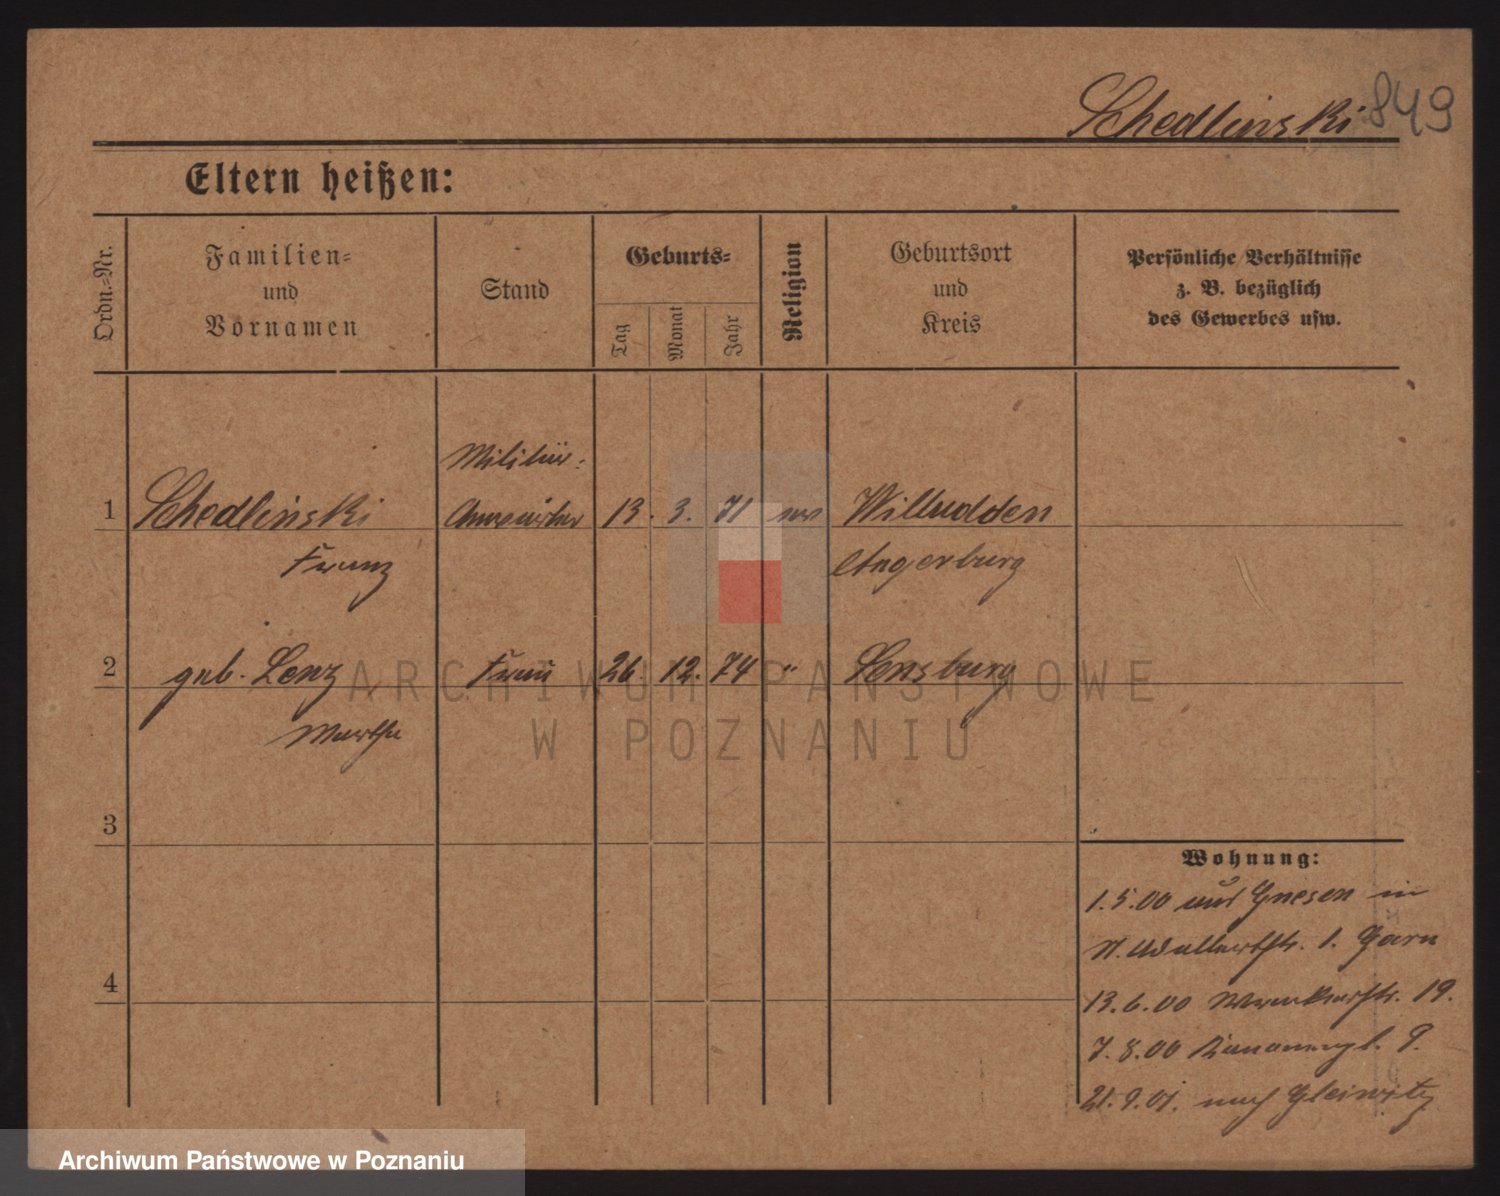 Schedlinski 849
Eltern heißen:
Ordn.-Nr.
Familien-
und
Vornamen
Stand
Geburts-
Tag
Monat
Jahr
Religion
Geburtsort
und
Kreis
Persönliche Verhältnisse
z. B. bezüglich
des Gewerbes usw.
Militär-
1 Schedlinski Anwärter 13. 3. 71 ev Willudden
Franz Angerburg
2 geb. Lenz Frau 26. 12. 74 " Sensburg
Martha
ARCHIWUM PAŃSTWOWE
W POZNANIU
3
Wohnung:
1.5.00 aus Gnesen in
St. Adalbertstr. 1. Garn
4
13.6.00 19.
7.8.00 9.
21.9.01. nach Gleiwitz
Archiwum Państwowe w Poznaniu